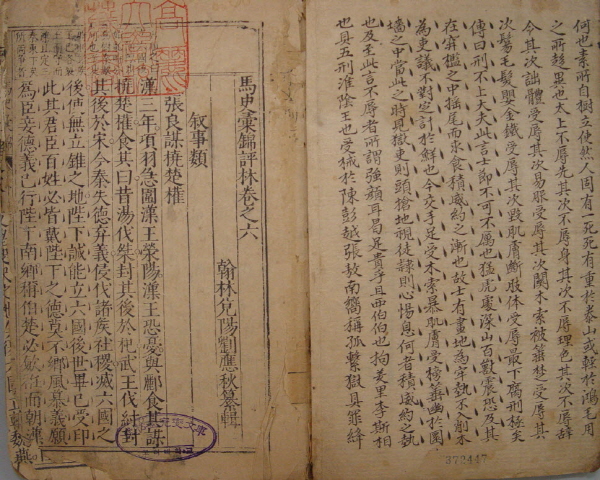 何也素所自樹立使然人固有一死死有重於泰山或輕於鴻毛用
之所趍異也太上不辱先其次不辱身其次不辱理色其次不辱辭
令其次詘體受辱其次易服受辱其次關木索被箠楚受辱其
次鬄毛髮嬰金鐵受辱其次毀肌膚斷肢体受辱最下腐刑極矣
傳曰刑不上大夫此言士節不可不厲也猛虎處深山百獸震恐及其
在穽檻之中摇尾而求食積威約之漸也故士有畫地為牢勢不入削木
為吏議不對定計於鮮也今交手足受木索暴肌膚受榜箠幽於圜
墻之中當此之時見獄吏則頭搶地視徒隸則心惕息何者積威約之勢
也及至此言不辱者所謂強顏耳曷足貴乎且西伯伯也拘羑里李斯相
也具五刑淮陰王也受械於陳彭越張敖南嚮稱孤繫獄具罪絳
372447
馬史彙編評林卷之六
翰林兌陽劉應秋纂輯
叙事類
張良謀撓楚權
漢三年項羽急圍漢王滎陽漢王恐憂與酈食其謀
撓楚權食其曰昔湯伐桀封其後於杞武王伐紂封
其後於宋今秦失德弃義侵伐諸侯社稷滅六國之
後使無立錐之地陛下誠能立六國後世畢已受印
此其君臣百姓必皆戴陛下之德莫不鄉風慕義願
爲臣妾德義已行陛下南鄉稱伯楚必斂衽而朝漢